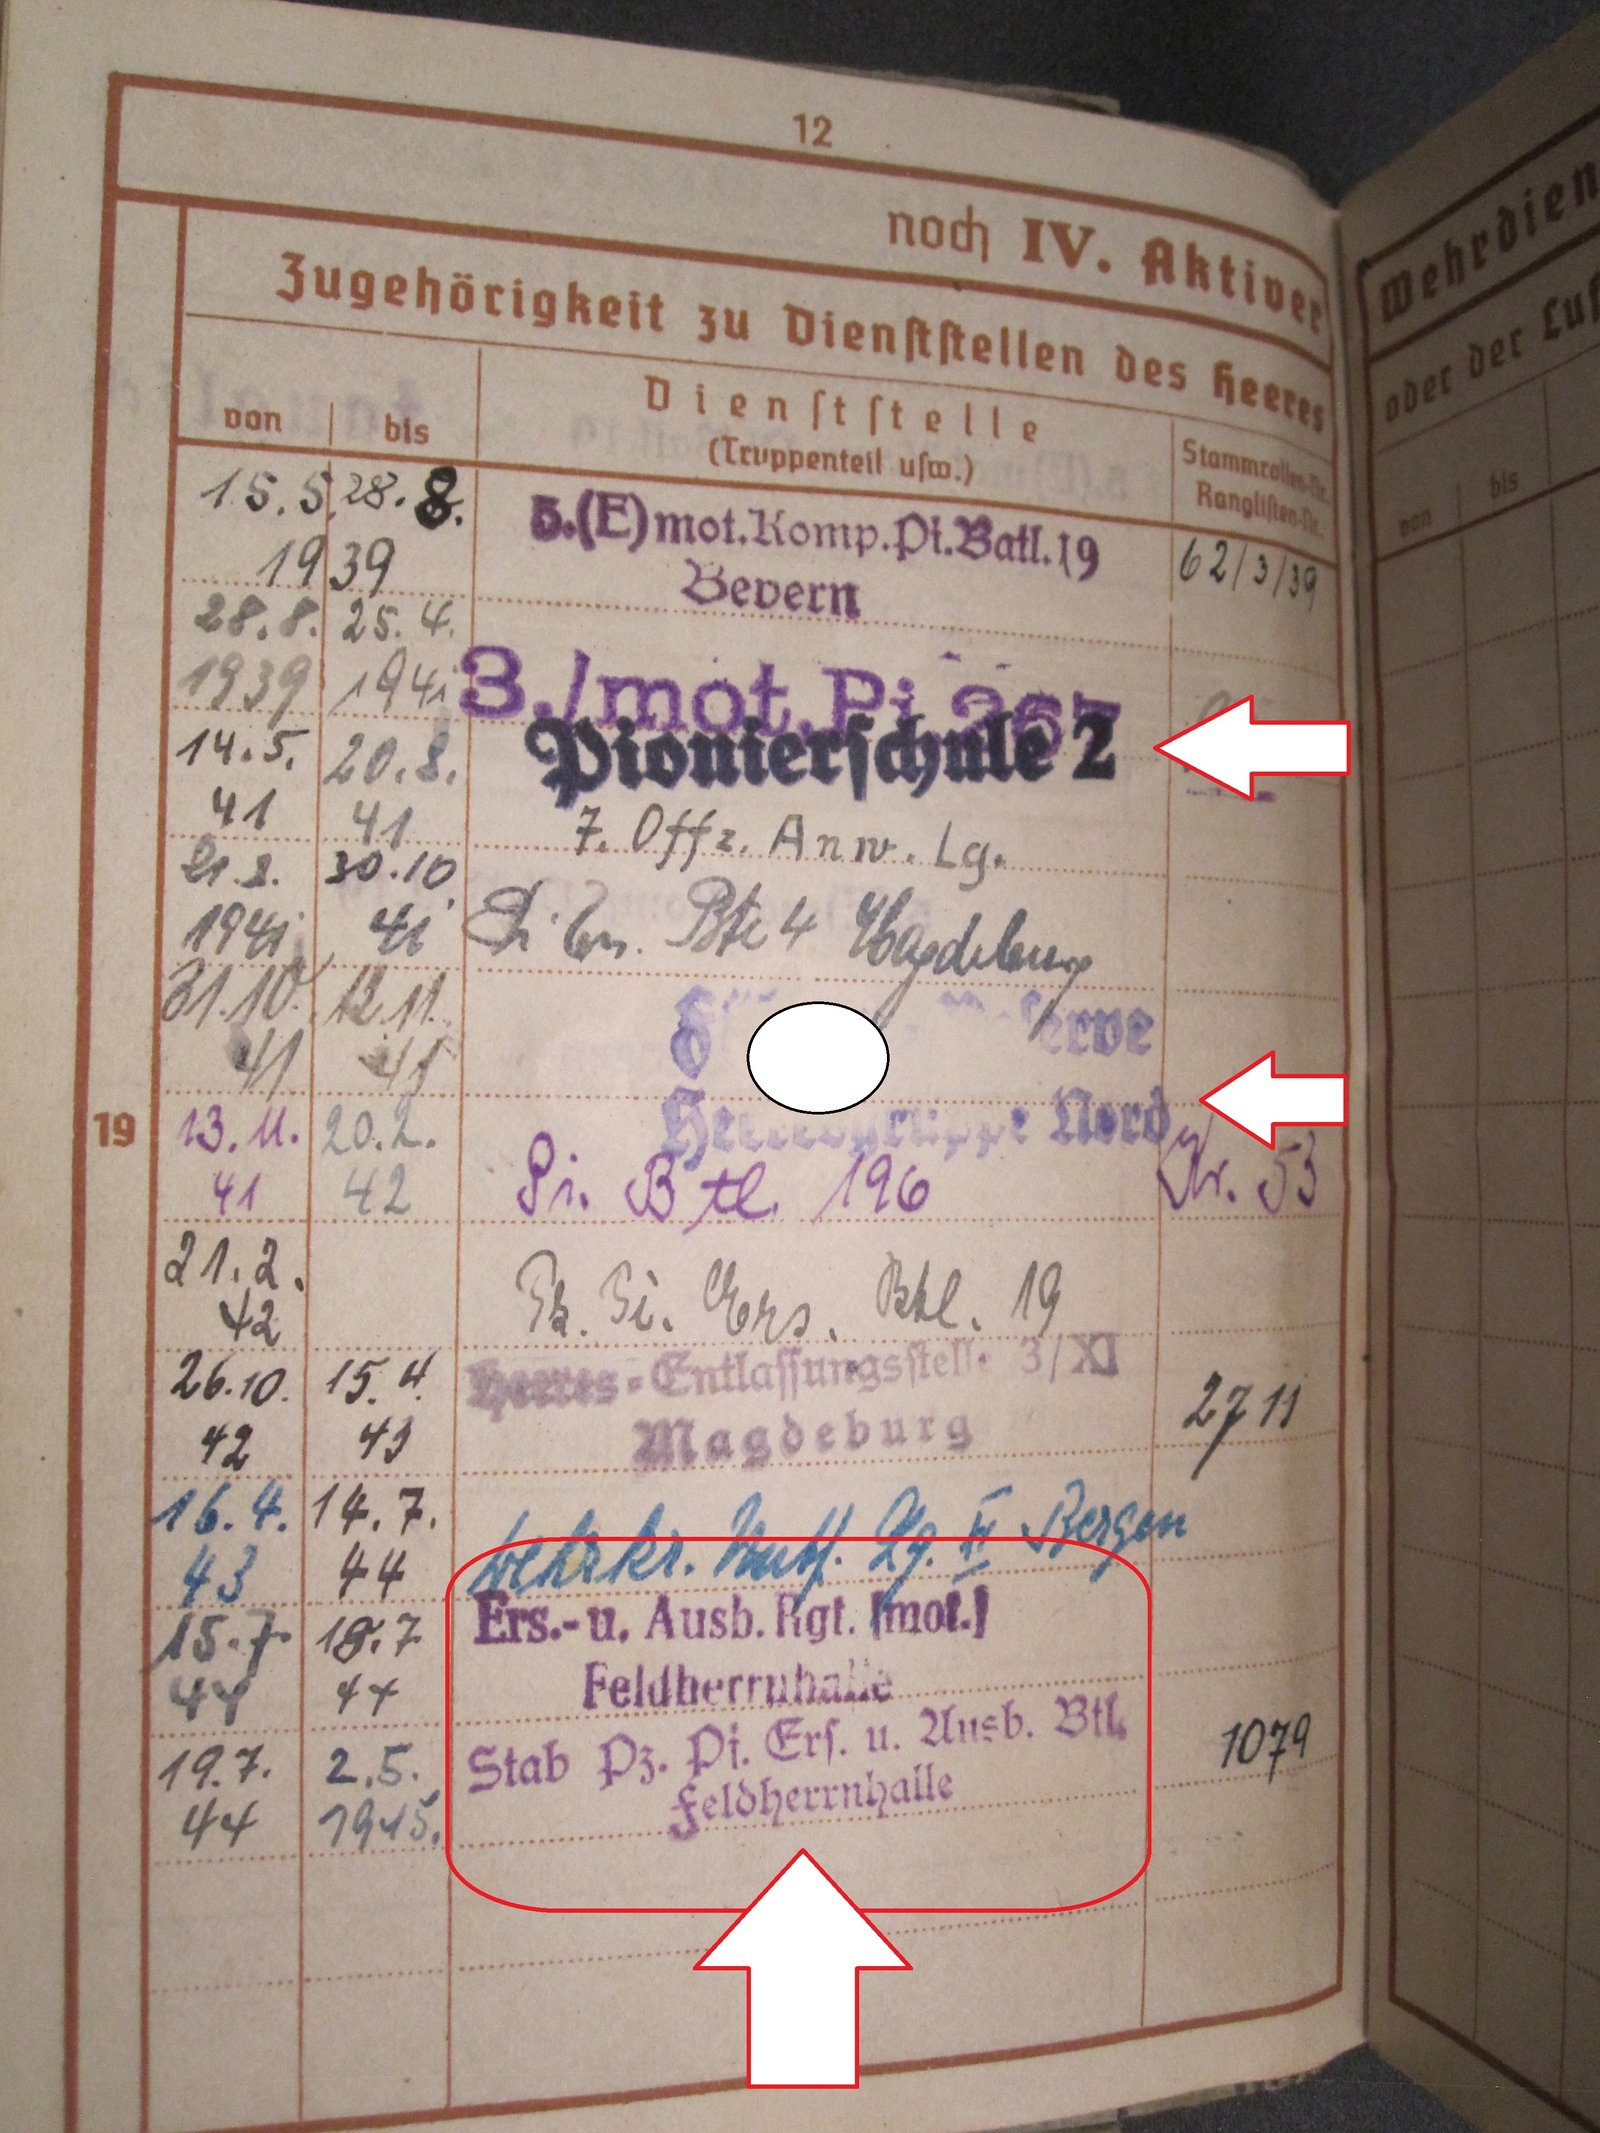 12
noch IV. Aktiver
Wehrdien
Zugehörigkeit zu Dienststellen des Heeres
oder der Luf
von bis Dienststelle
(Truppenteil usw.)
Stammrollen-Nr.
Ranglisten-Nr.
von bis
15.5. 28.8. 5.(E)mot.Komp.Pi.Batl.19
1939 Bevern 62/3/39
28.8. 25.4.
1939 1941 3./mot.Pi.267
14.5. 20.8. Pionierschule 2
41 41 7. Offz. Anw. Lg.
21.8. 30.10
1941 41 Btl 4 Magdeburg
31.10. 12.11.
41 41
19 13.11. 20.2. Heeresgruppe Nord
41 42 Pi. Btl. 196 Nr. 53
21.2.
42 Pi. Ers. Btl. 19
26.10. 15.4. Heeres-Entlassungsstelle 3/XI
42 43 Magdeburg 2711
16.4. 14.7.
43 44 Wehrkr. Lg. II Bergen
15.7. 18.7 Ers.-u. Ausb. Rgt. [mot.]
44 44 Feldherrnhalle
19.7. 2.5. Stab Pz. Pi. Ers. u. Ausb. Btl.
44 1945. Feldherrnhalle 1079